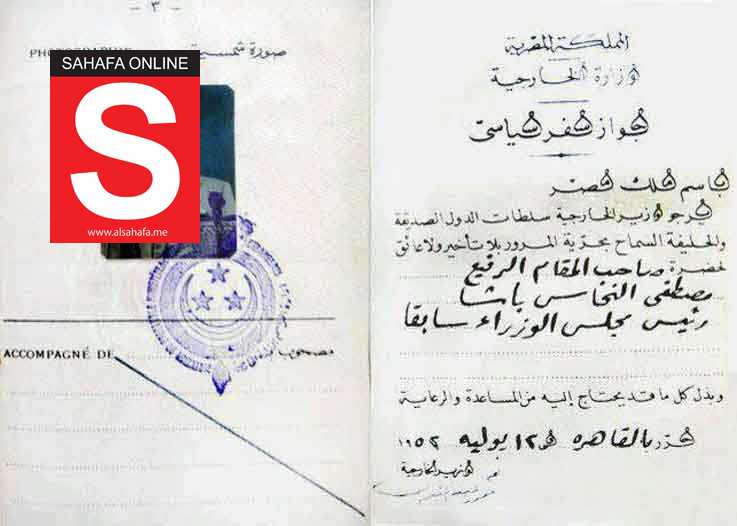 - ٣ -
صورة شمسية
SAHAFA ONLINE
S
www.alsahafa.me
ACCOMPAGNÉ DE
المملكة المصرية
وزارة الخارجية
جواز سفر سياسى
باسم ملك مصر
يرجو وزير الخارجية سلطات الدول الصديقة
والحليفة السماح بحرية المرور بلا تأخير ولا عائق
لحضرة صاحب المقام الرفيع
مصطفى النحاس باشا
رئيس مجلس الوزراء سابقا
وبذل كل ما قد يحتاج إليه من المساعدة والرعاية
صدر بالقاهرة فى ١٢ يوليه ١٩٥٢
وزير الخارجية